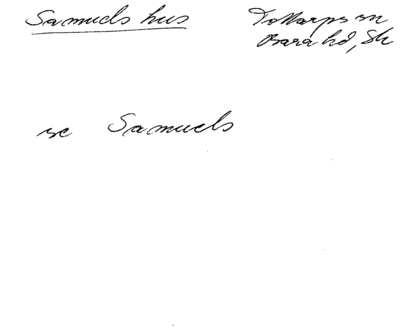 Samuels hus Tottarps sn
Bara hd, Sk
se Samuels